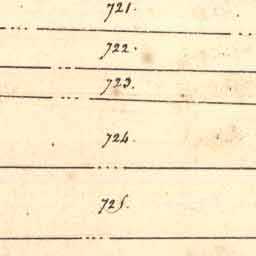 721.
722.
723.
724.
725.